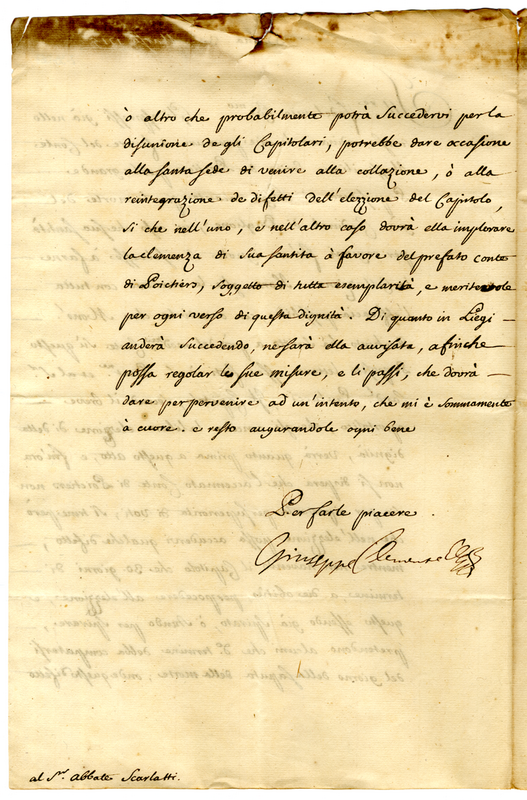 ò altro che probabilmente potrà succedervi per la
disunione de gli Capitolari, potrebbe dare occasione
alla santa sede di venire alla collazione, ò alla
reintegrazione de difetti dell'elezzione del Capitolo,
si che nell'uno, e nell'altro caso dovrà ella implorare
la clemenza di Sua Santità à favore del prefato conte
di Poictiers, soggetto di tutta esemplarità, e meritevole
per ogni verso di questa dignità. Di quanto in Liegi
anderà succedendo, ne sarà ella avvisata, afinche
possa regolar le sue misure, e li passi, che dovrà
dare per pervenire ad un'intento, che mi è sommamente
à cuore. e resto augurandole ogni bene
Per farle piacere
Giuseppe Clemente
al S.r abbate Scarlatti.